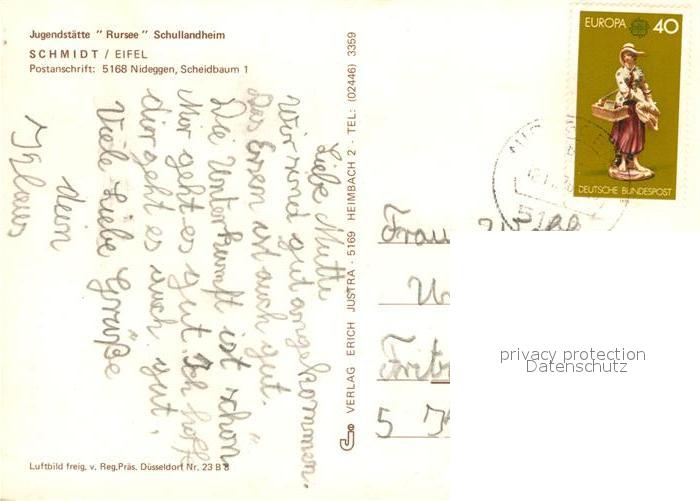 Jugendstätte "Rursee" Schullandheim
SCHMIDT / EIFEL
Postanschrift: 5168 Nideggen, Scheidbaum 1
Liebe Mutte
Wir sind gut angekommen.
Das Essen ist auch gut.
Die Unterkunft ist schön
Mir geht es gut. Ich hoff
dir geht es auch gut.
Viele Liebe Grüße
dein
Klaus
Luftbild freig. v. Reg.Präs. Düsseldorf Nr. 23 B 8
VERLAG ERICH JUSTRA · 5169 HEIMBACH 2 · TEL: (02446) 3359
EUROPA 40
DEUTSCHE BUNDESPOST
Frau
5
privacy protection
Datenschutz